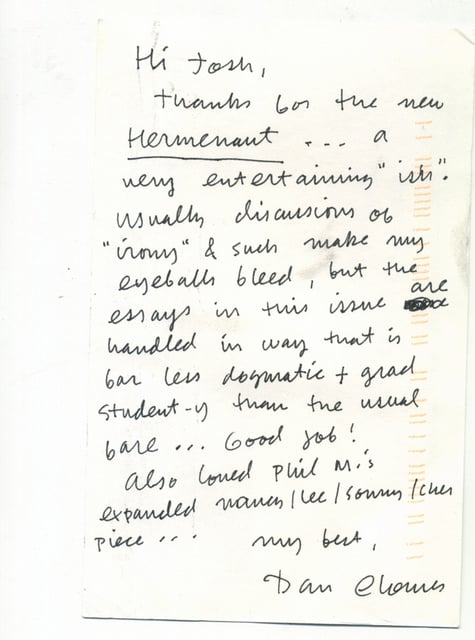 Hi Josh,
Thanks for the new
Hermenaut ... a
very entertaining "ish".
Usually discussions of
"irony" & such make my
eyeballs bleed, but the
essays in this issue are
handled in way that is
far less dogmatic + grad
student-y than the usual
fare ... Good job!
Also loved Phil M.'s
expanded Nancy/Lee/Sonny/Cher
piece ... My best,
Dan Clowes